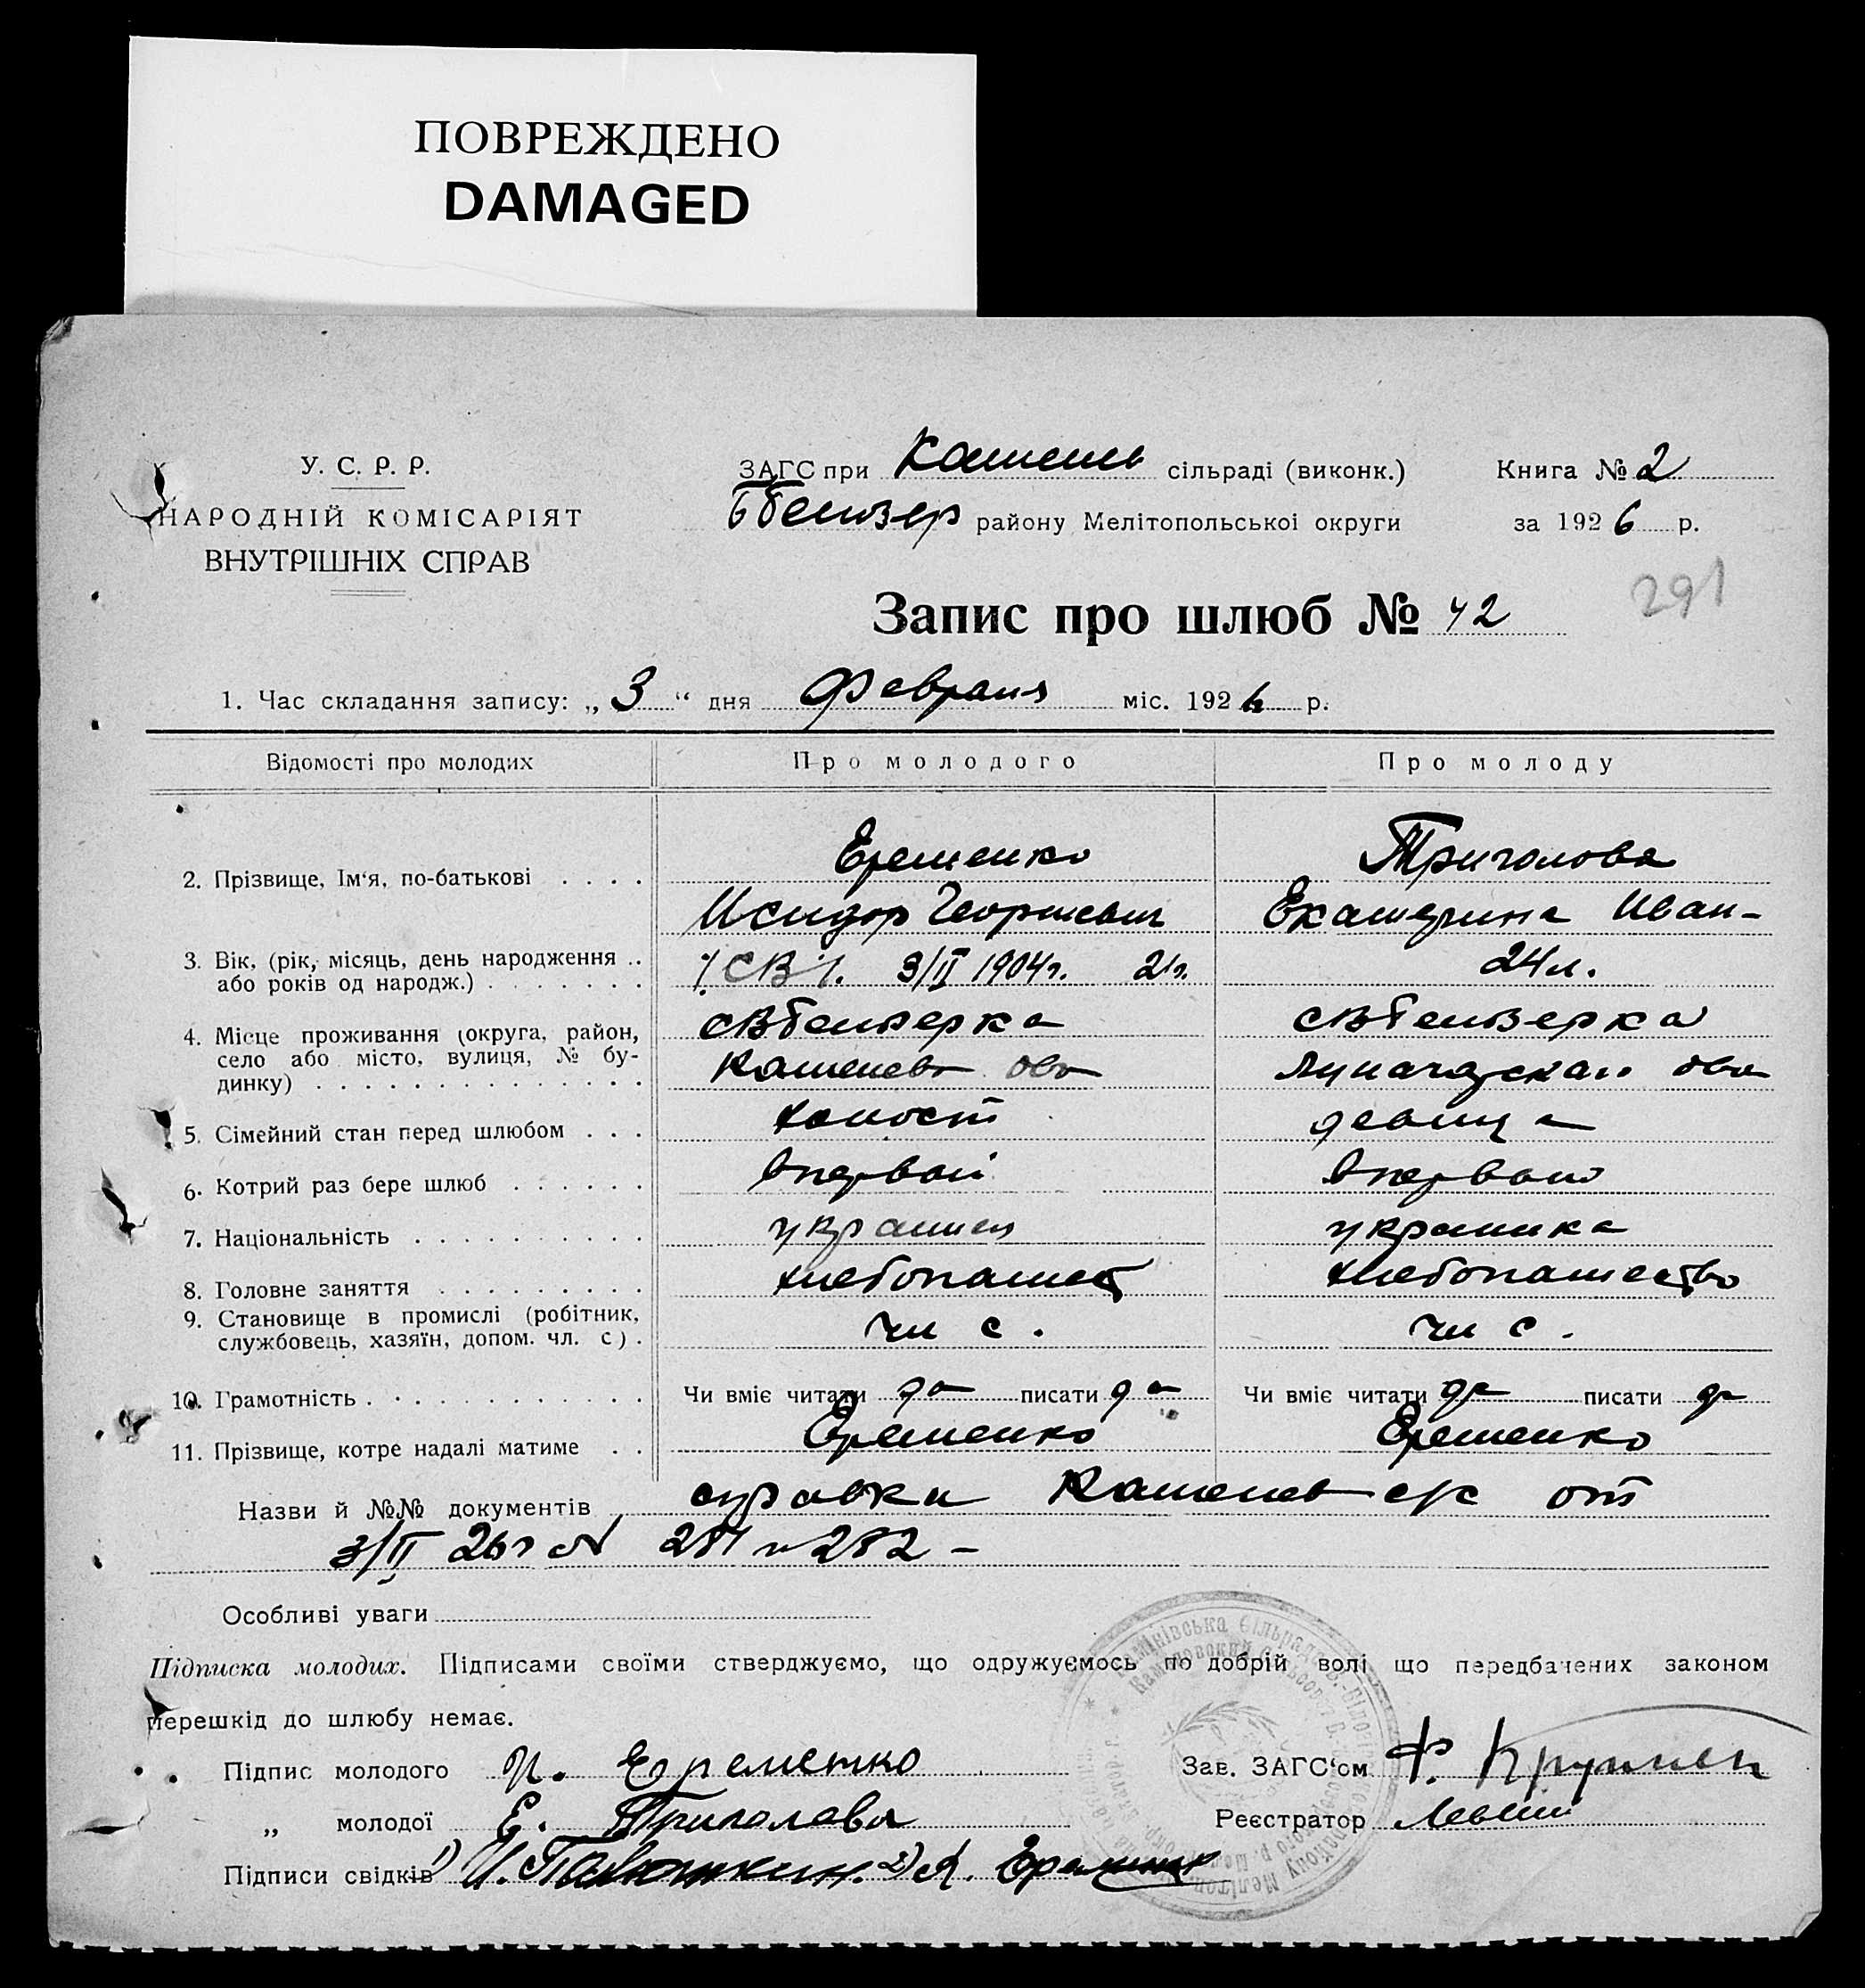 ПОВРЕЖДЕНО
DAMAGED
У. С. Р. Р.
НАРОДНІЙ КОМІСАРІЯТ
ВНУТРІШНІХ СПРАВ
ЗАГС при Каменев сільраді (виконк.)
району Мелітопольської округи
Книга № 2
за 1926 р.
291
Запис про шлюб № 42
1. Час складання запису: „ 3 “ дня Февраля міс. 1926 р.
Відомості про молодих
Про молодого
Про молоду
2. Прізвище, Ім‘я, по-батькові . . . .
Еременко
Триполова
Исидор Георгиевич
Екатерина Иван-
3. Вік, (рік, місяць, день народження ..
або років од народж.) . . . . . . .
3/II 1904г. 21г.
24л.
4. Місце проживання (округа, район,
село або місто, вулиця, № бу-
динку) . . . . . . . . . . . . . .
с Вбелозерка
с Вбелозерка
Каменев ова
ова
5. Сімейний стан перед шлюбом . . .
холост
девица
6. Котрий раз бере шлюб . . . . . .
впервой
впервой
7. Національність . . . . . . . . . .
украинец
украинка
8. Головне заняття . . . . . . . . .
хлебопашец
хлебопашество
9. Становище в промислі (робітник,
службовець, хазяїн, допом. чл. с) .
чл с.
чл с.
10. Грамотність . . . . . . . . . . . .
Чи вміє читати да писати да
Чи вміє читати да писати да
11. Прізвище, котре надалі матиме . .
Еременко
Еременко
Назви й №№ документів справки Каменев с/с от
3/II 26г № 281 и 282 -
Особливі уваги
Підписка молодих. Підписами своїми стверджуємо, що одружуємось по добрій волі що передбачених законом
перешкід до шлюбу немає.
Підпис молодого И. Еременко
Зав. ЗАГС‘ом Ф.
„ молодої Е. Триполова
Реєстратор
Підписи свідків 1) И. 2)